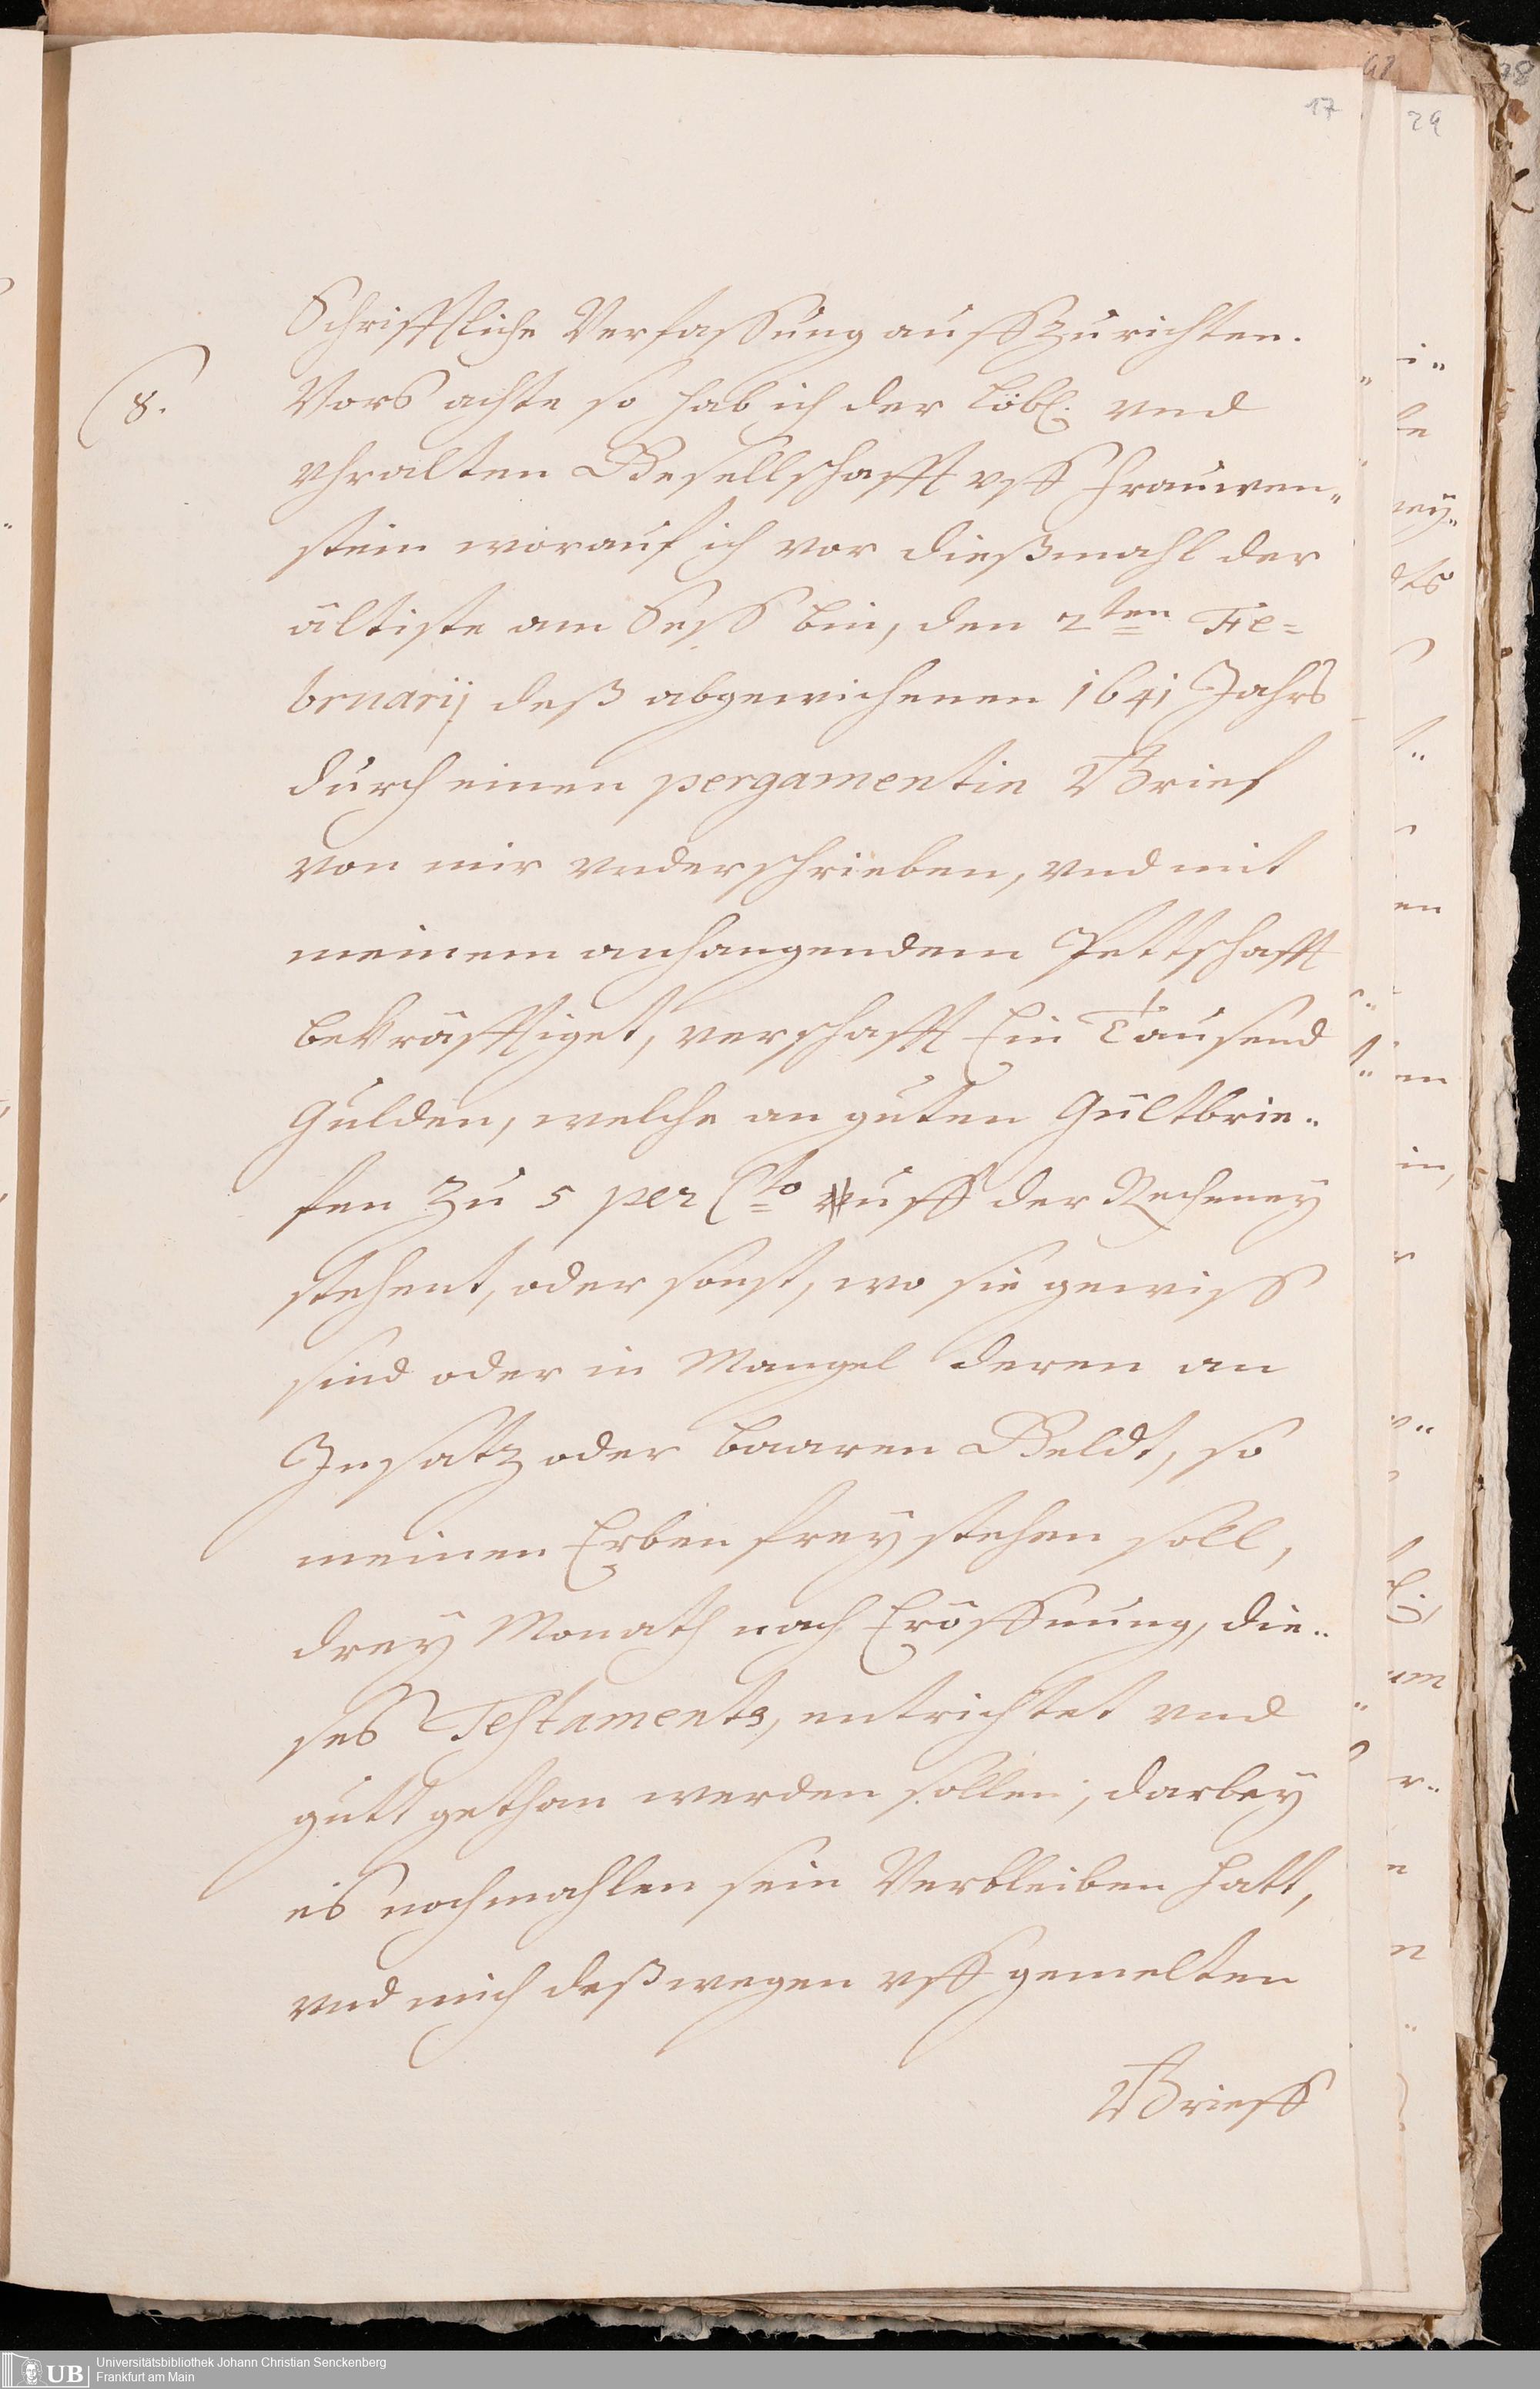 17
Schrifftliche Verfassung ausszurichten.
8. Vors achte so hab ich der Löbl. vnd
vhralten Gesellschafft vff Frauwen„
stein worauf ich vor dießmahl der
ältiste am Sess bin, den 2ten Fe=
bruarij deß abgewichenen 1641 Jahrs
durch einen pergamentin Brief
von mir vnderschrieben, vnd mit
meinem anhangendem Pettschafft
bekräfftiget, verschafft Ein Tausend
Gulden, welche an guten Gültbrie„
fen zu 5 per Cto uff der Recheney
stehent, oder sonst, wo sie gewiss
sind oder in Mangel deren an
Insatz oder baaren Geldt, so
meinen Erben frey stehen soll,
drey Monath nach Eröffnung, die„
ses Testaments, entrichtet vnd
gutt gethan werden sollen, darbey
es nochmahlen sein Verbleiben hatt,
vnd mich deßwegen vff gemelten
Brieff
29
UB
Universitätsbibliothek Johann Christian Senckenberg
Frankfurt am Main